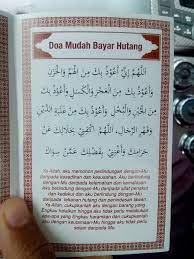 Doa Mudah Bayar Hutang
اَللّٰهُمَّ إِنِّيْ أَعُوْذُ بِكَ مِنَ الْهَمِّ وَالْحَزَنِ
وَأَعُوْذُ بِكَ مِنَ الْعَجْزِ وَالْكَسَلِ وَأَعُوْذُ بِكَ
مِنَ الْجُبْنِ وَالْبُخْلِ وَأَعُوْذُ بِكَ مِنْ غَلَبَةِ الدَّيْنِ
وَقَهْرِ الرِّجَالِ، اَللّٰهُمَّ اكْفِنِيْ بِحَلَالِكَ عَنْ
حَرَامِكَ وَأَغْنِنِيْ بِفَضْلِكَ عَمَّنْ سِوَاكَ
Ya Allah, aku memohon perlindungan dengan-Mu
daripada kesedihan dan kedukaan. Aku berlindung
dengan-Mu daripada kelemahan dan kemalasan
dan aku berlindung dengan-Mu daripada sifat penakut
dan kedekut dan aku berlindung dengan-Mu
daripada tekanan hutang dan penindasan
Ya Allah, cukupkanlah aku dengan barang yang
Engkau halalkan hingga aku tidak perlu melakukan
apa yang Engkau haramkan dan cukupkanlah
dengan-Mu hingga aku tidak perlu pada
selain daripada-Mu